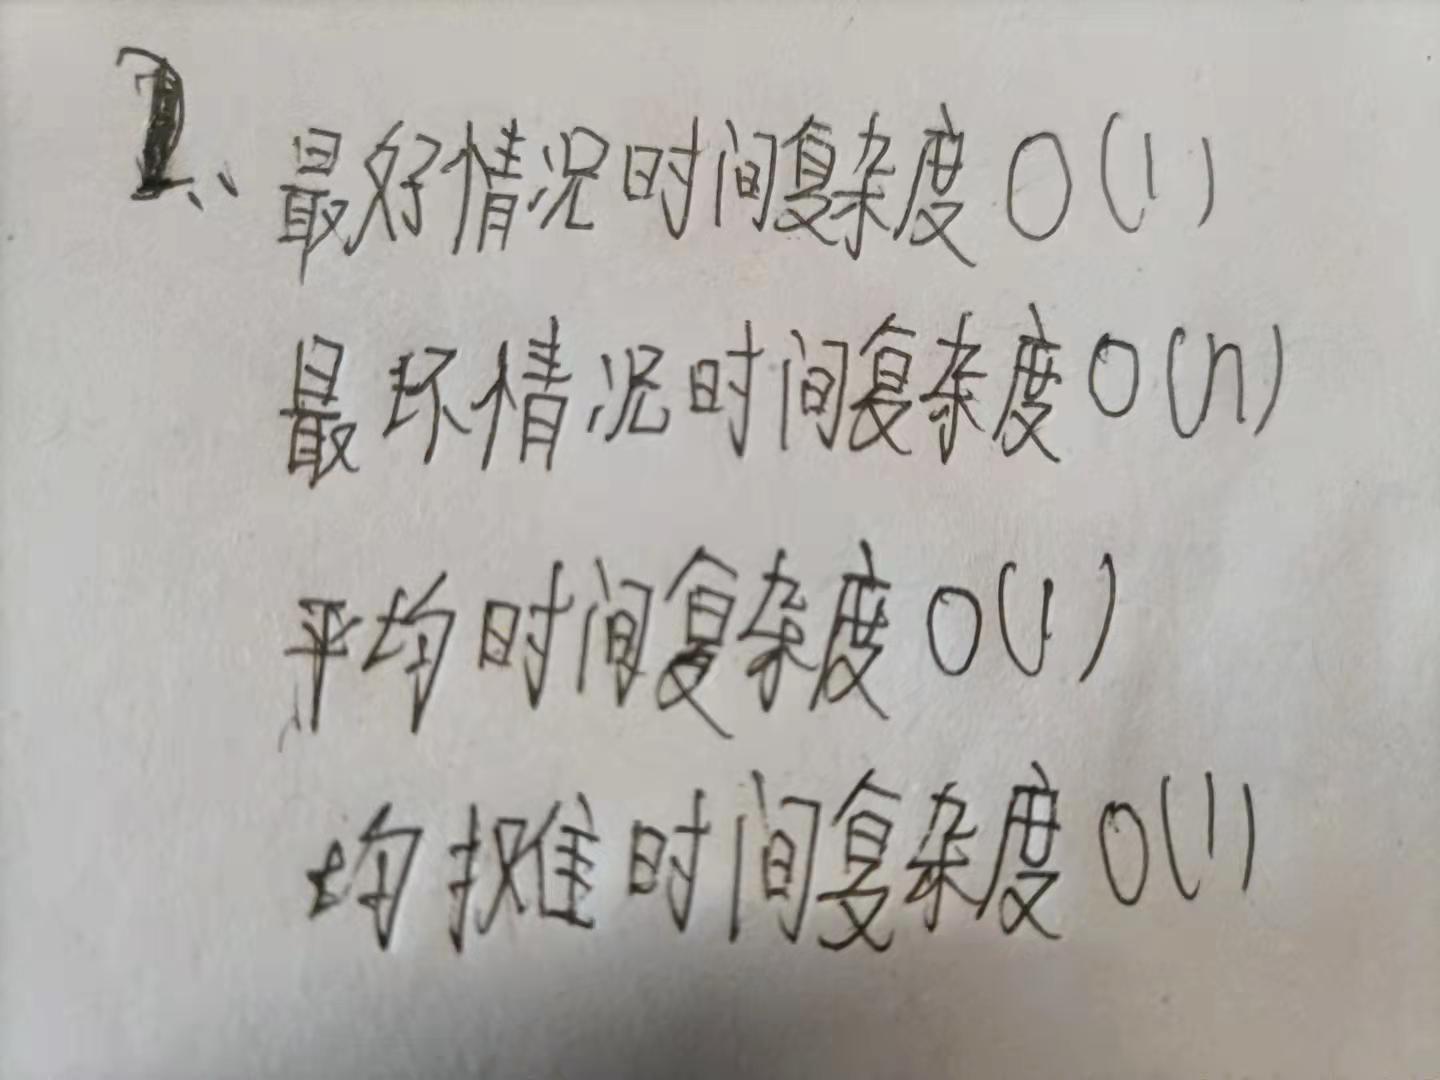 2、最好情况时间复杂度 O(1)
最坏情况时间复杂度 O(n)
平均时间复杂度 O(1)
均摊时间复杂度 O(1)